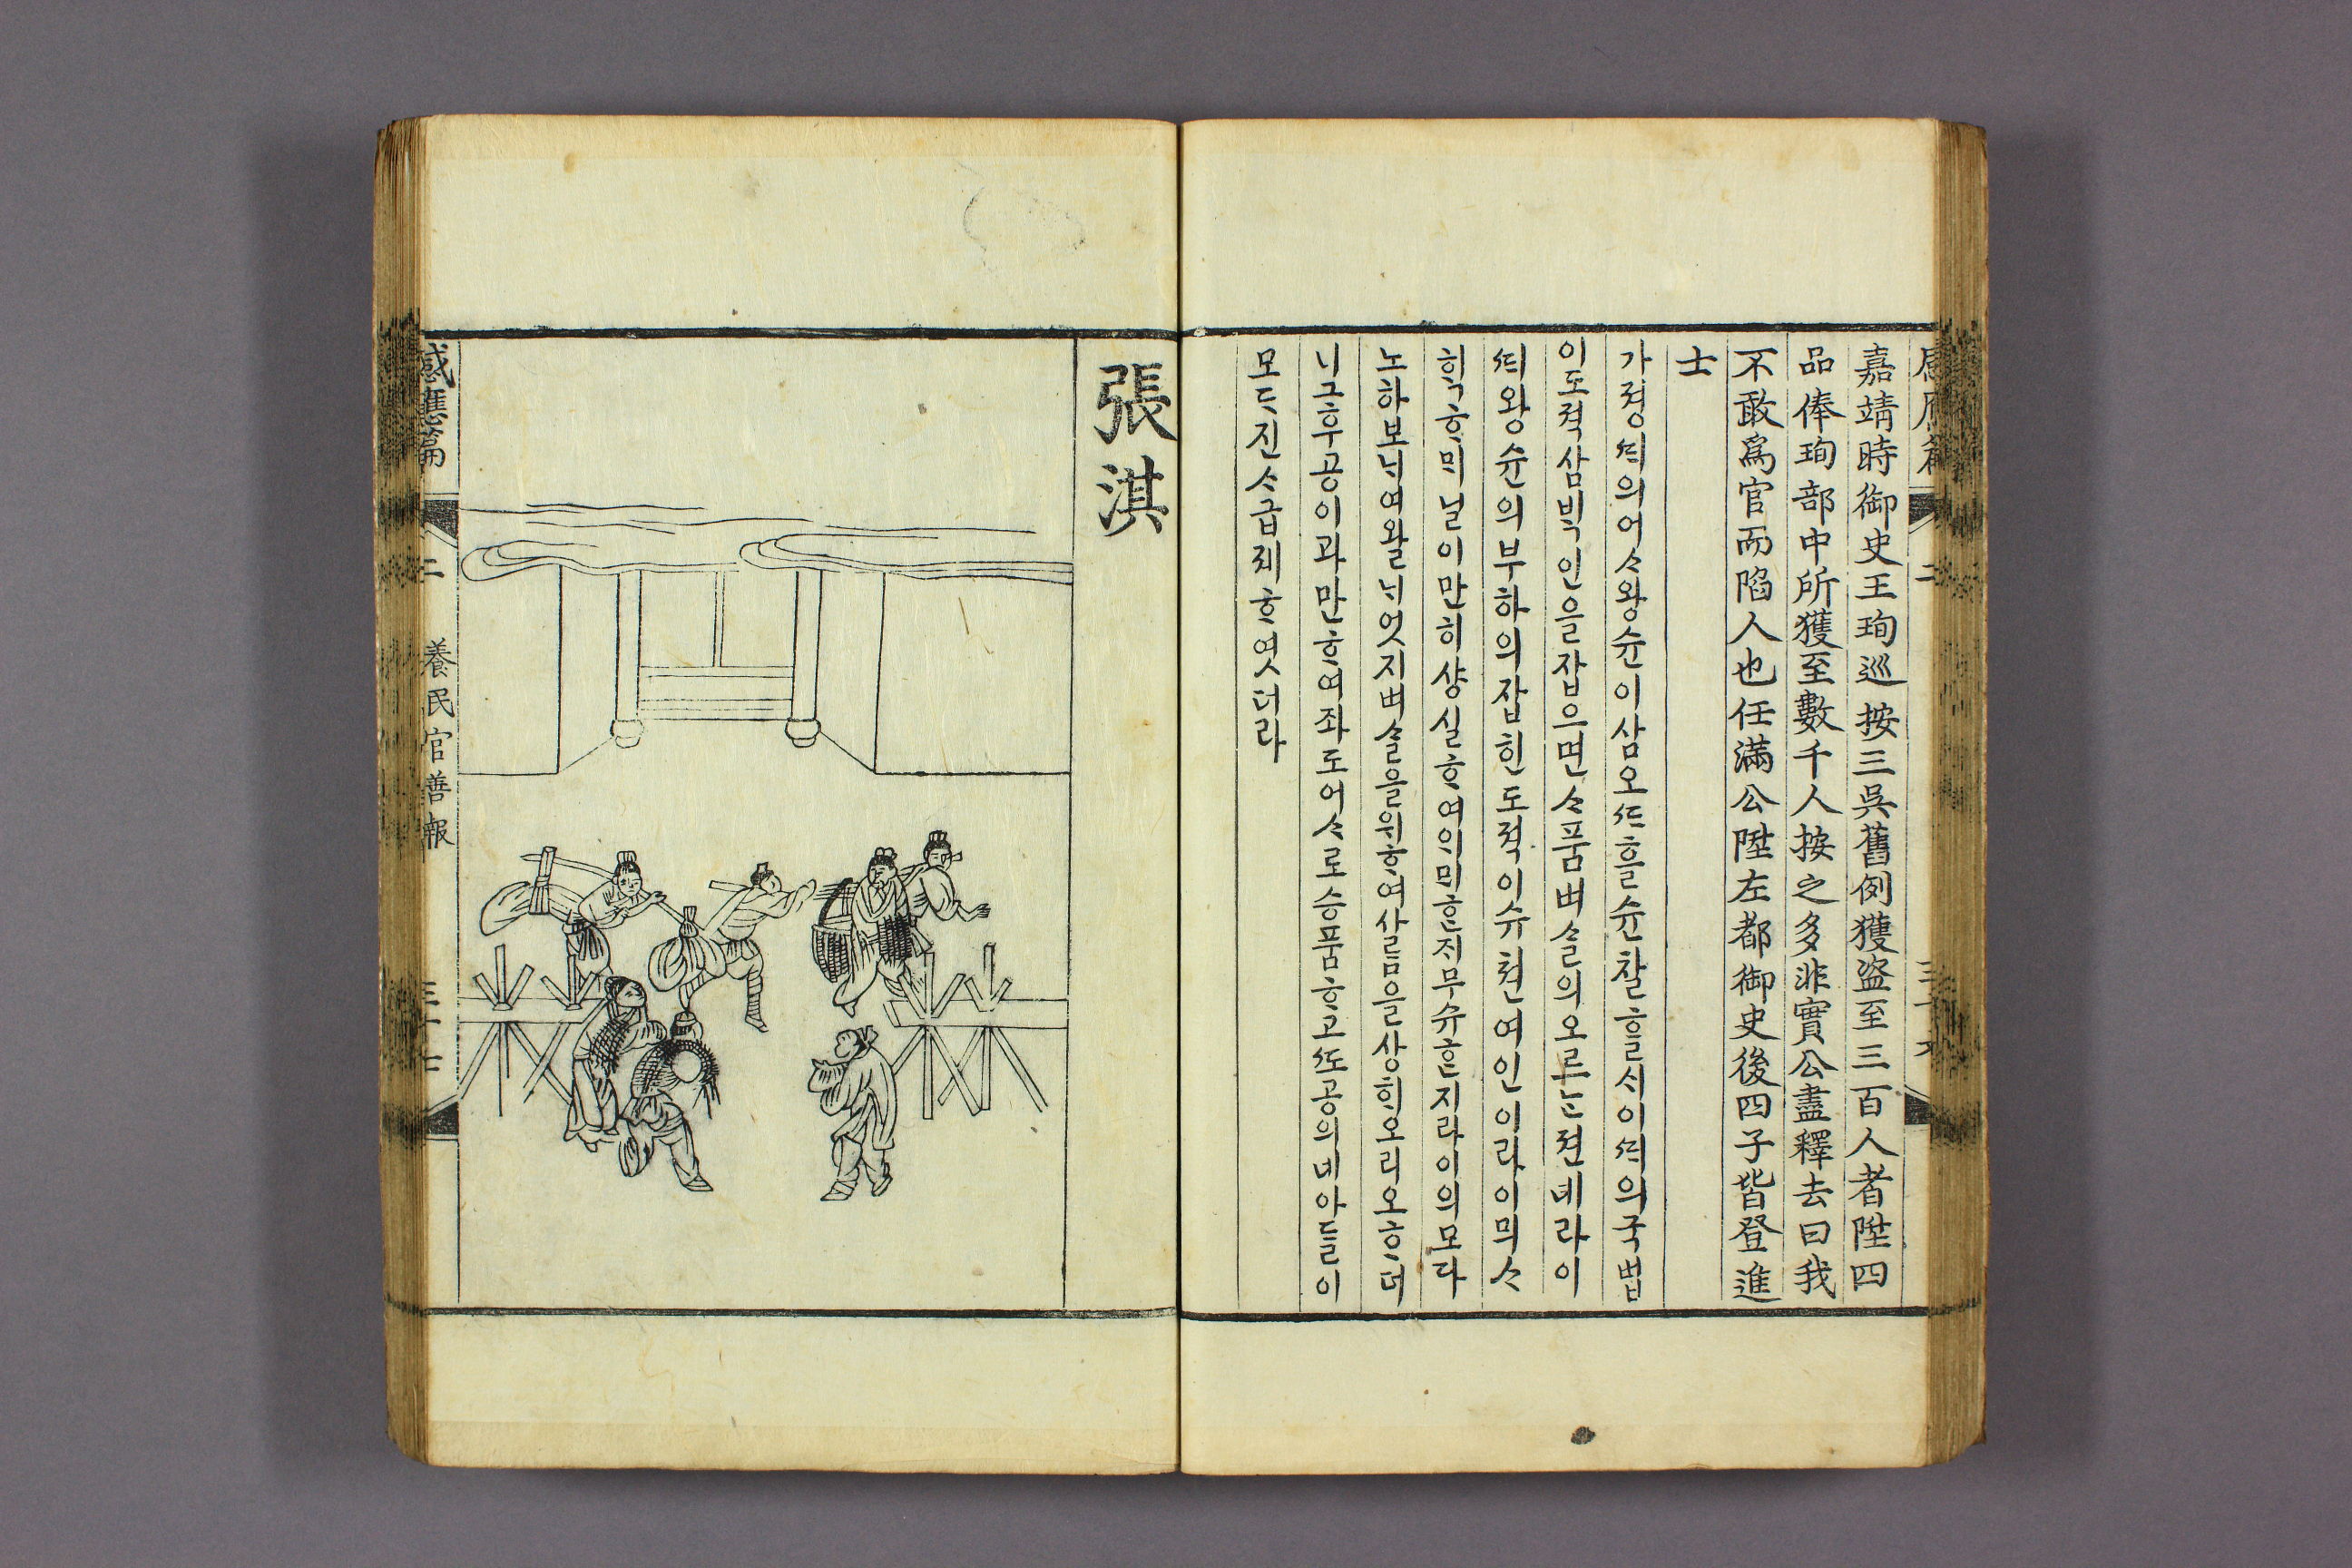 嘉靖時御史王珣巡按三吳舊例獲盜至三百人者陞四
品俸珣部中所獲至數千人按之多非實公盡釋去曰我
不敢爲官而陷人也任滿公陞左都御史後四子皆登進
士
가졍ᄯᆡ의어ᄉᆞ왕슌이삼오ᄯᆞ흘슌찰ᄒᆞᆯᄉᆡ이ᄯᆡ의국법
이도젹삼ᄇᆡᆨ인을잡으면ᄉᆞ품벼ᄉᆞᆯ의오르ᄂᆞᆫ젼녜라이
ᄯᆡ왕슌의부하의잡힌도젹이슈쳔여인이라이ᄆᆡᄉᆞ
ᄒᆡᆨᄒᆞᄆᆡ널이만히샹실ᄒᆞ여의ᄆᆡᄒᆞᆫᄌᆡ무슈ᄒᆞᆫ지라이의모다
노하보ᄂᆡ여왈ᄂᆡ엇지벼ᄉᆞᆯ을위ᄒᆞ여사ᄅᆞᆷ을상ᄒᆡ오리오ᄒᆞ더
니그후공이과만ᄒᆞ여좌도어ᄉᆞ로승품ᄒᆞ고ᄯᅩ공의네아들이
모ᄃᆞ진ᄉᆞ급졔ᄒᆞ엿더라
張淇
感應篇 二 養民官善報 三十七